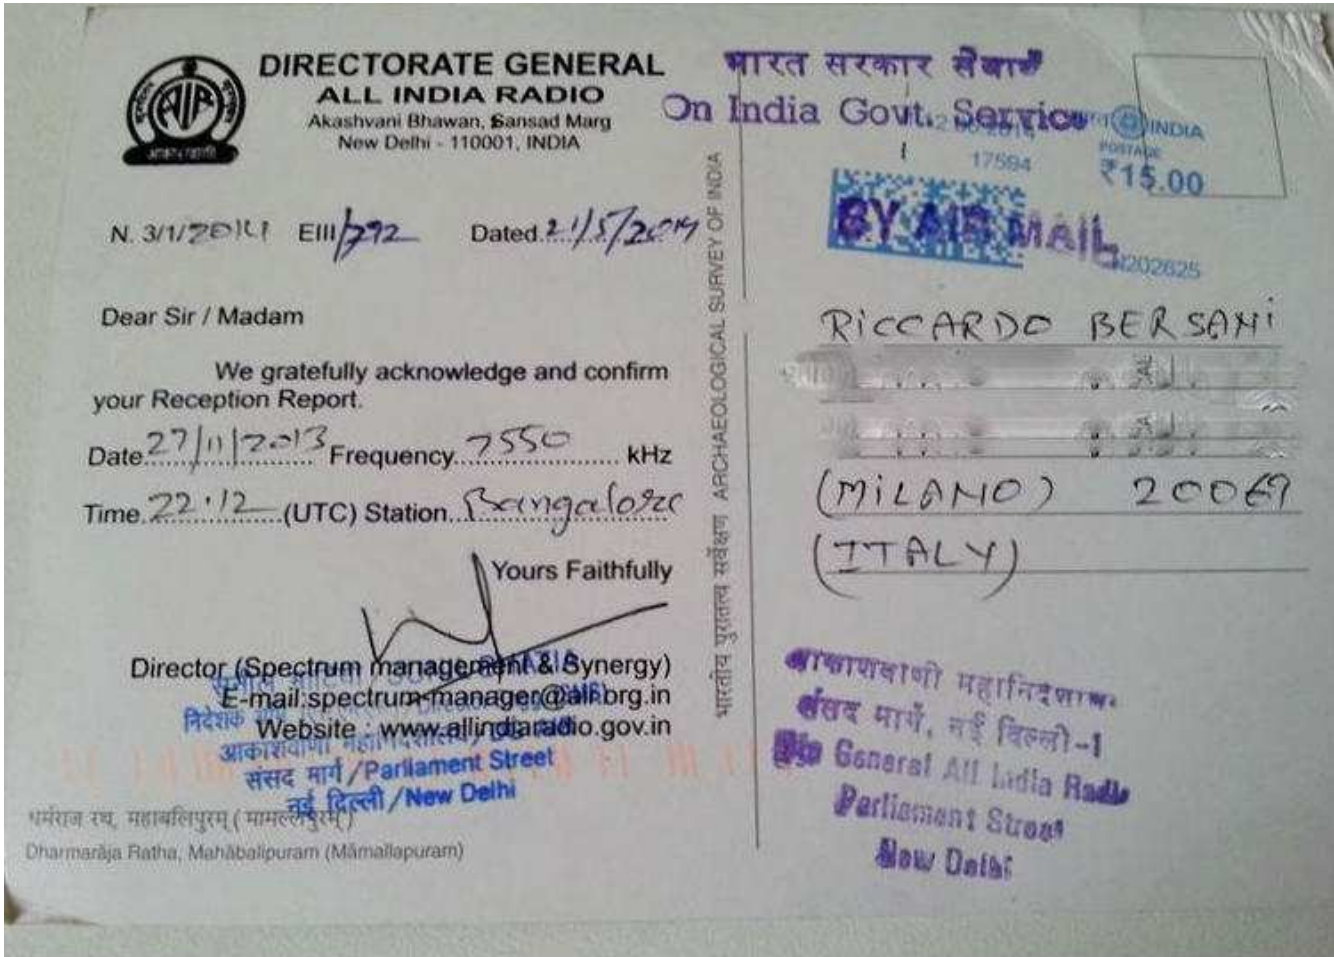 DIRECTORATE GENERAL
ALL INDIA RADIO
Akashvani Bhawan, Sansad Marg
New Delhi - 110001, INDIA
AIR
N. 3/1/2014 EIII/292 Dated 21/5/2014
Dear Sir / Madam
We gratefully acknowledge and confirm
your Reception Report.
Date 27/11/2013 Frequency 7550 kHz
Time 22.12 (UTC) Station Bangalore
Yours Faithfully
Director (Spectrum management & Synergy)
E-mail:spectrum-manager@air.org.in
Website : www.allindiaradio.gov.in
निदेशक
आकाशवाणी महानिदेशालय
संसद मार्ग/Parliament Street
नई दिल्ली/New Delhi
धर्मराज रथ, महाबलिपुरम् (मामल्लपुरम्)
Dharmarāja Ratha, Mahābalipuram (Māmallapuram)
भारतीय पुरातत्व सर्वेक्षण ARCHAEOLOGICAL SURVEY OF INDIA
भारत सरकार सेवार्थ
On India Govt. Service
INDIA
17594
POSTAGE
₹15.00
BY AIR MAIL
202625
RICCARDO BERSANI
(MILANO) 20069
(ITALY)
आकाशवाणी महानिदेशालय
संसद मार्ग, नई दिल्ली-1
General All India Radio
Parliament Street
New Delhi